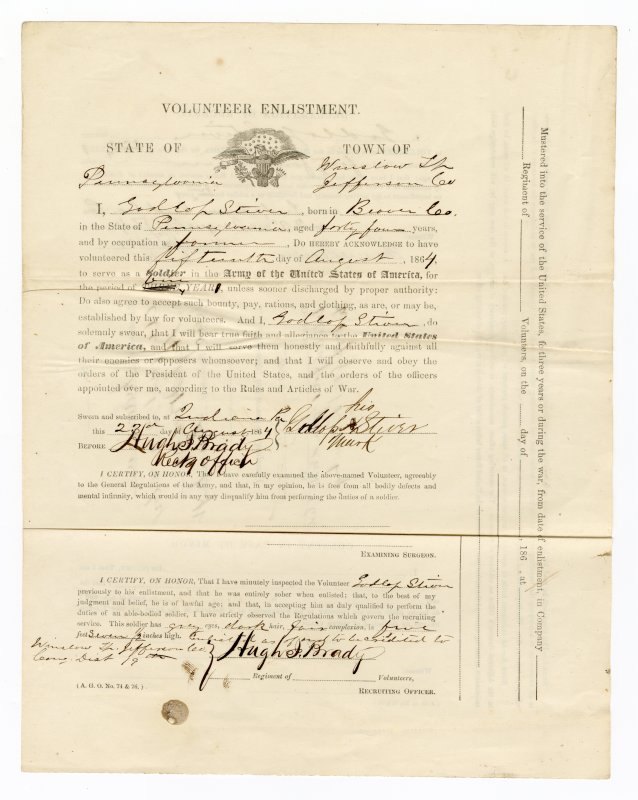 VOLUNTEER ENLISTMENT.
STATE OF
TOWN OF
Pennsylvania
Winslow Tp
Jefferson Co
I, Godlop Stiver, born in Beaver Co.
in the State of Pennsylvania, aged forty four years,
and by occupation a farmer, DO HEREBY ACKNOWLEDGE to have
volunteered this fifteenth day of August, 1864,
to serve as a Soldier in the Army of the United States of America, for
the period of YEAR, unless sooner discharged by proper authority:
Do also agree to accept such bounty, pay, rations, and clothing, as are, or may be,
established by law for volunteers. And I, Godlop Stiver, do
solemnly swear, that I will bear true faith and allegiance to the United States
of America, and that I will serve them honestly and faithfully against all
their enemies or opposers whomsoever; and that I will observe and obey the
orders of the President of the United States, and the orders of the officers
appointed over me, according to the Rules and Articles of War.
Sworn and subscribed to, at Indiana Pa
this 22nd day of August 1864
BEFORE Hugh S. Brady
Rectg officer
his
Godlop X Stiver
mark
I CERTIFY, ON HONOR, That I have carefully examined the above-named Volunteer, agreeably
to the General Regulations of the Army, and that, in my opinion, he is free from all bodily defects and
mental infirmity, which would in any way disqualify him from performing the duties of a soldier.
EXAMINING SURGEON.
I CERTIFY, ON HONOR, That I have minutely inspected the Volunteer Godlop Stiver
previously to his enlistment, and that he was entirely sober when enlisted; that, to the best of my
judgment and belief, he is of lawful age; and that, in accepting him as duly qualified to perform the
duties of an able-bodied soldier, I have strictly observed the Regulations which govern the recruiting
service. This soldier has grey eyes, dark hair, fair complexion, is five
feet Seven inches high. to be accredited to
Winslow Tp. Jefferson Co
Cong Dist 19th
Hugh S. Brady
Regiment of Volunteers,
RECRUITING OFFICER.
(A. G. O. No. 74 & 76.)
Mustered into the service of the United States, for three years or during the war, from date of enlistment, in Company
Regiment of Volunteers, on the day of , 186 , at